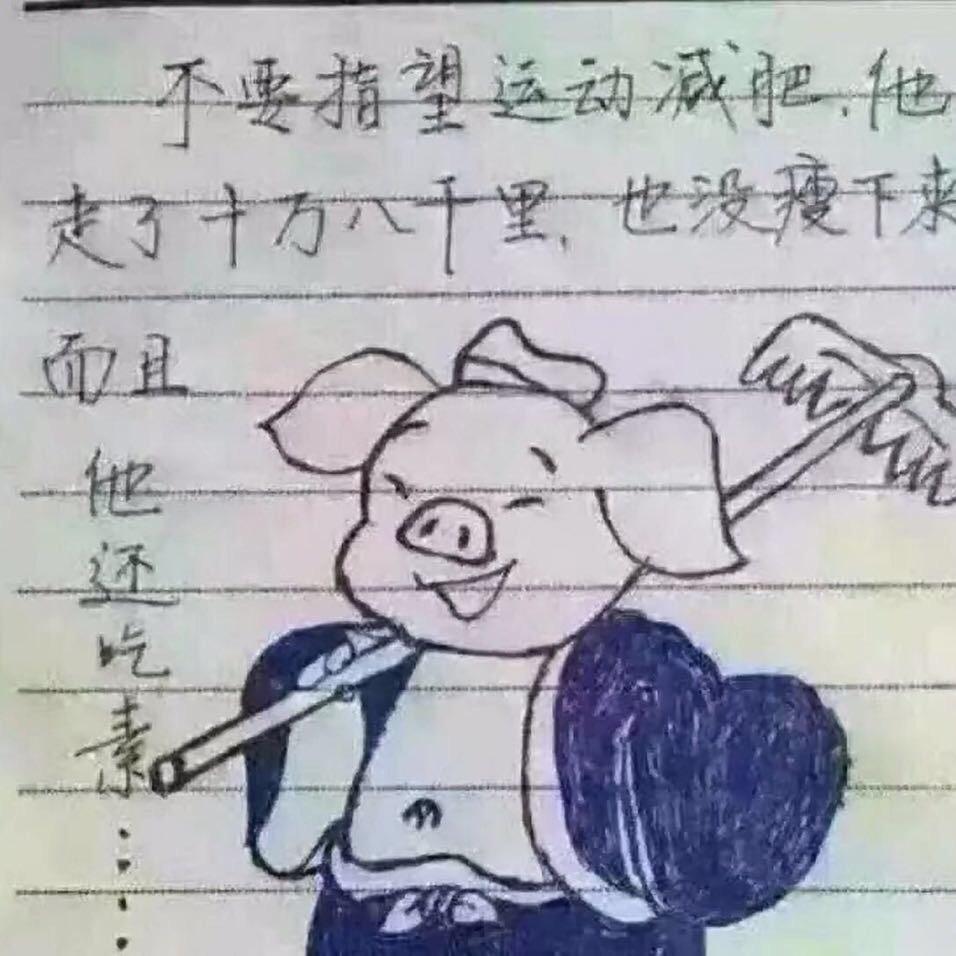 不要指望运动减肥,他
走了十万八千里,也没瘦下来
而且
他
还
吃
素
……